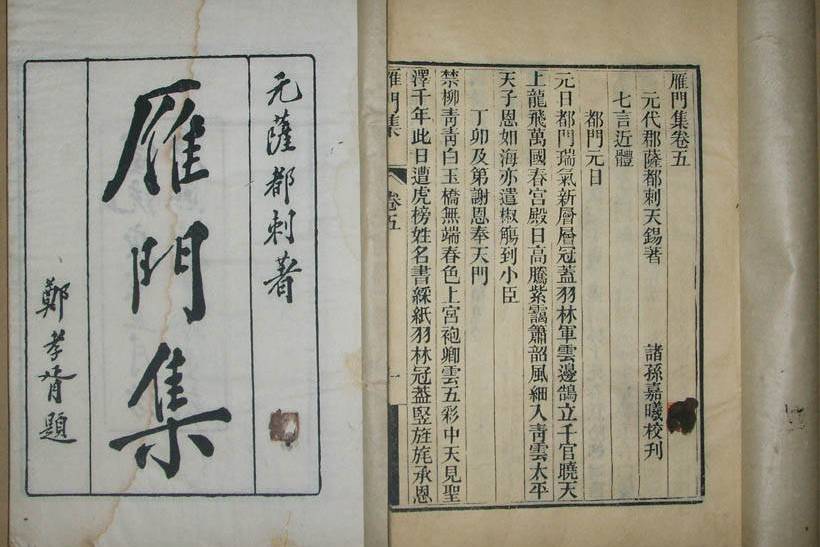 元薩都剌著
雁門集
鄭孝胥題
雁門集卷五
元代郡薩都剌天錫著　諸孫嘉曦校刊
七言近體
都門元日
元日都門瑞氣新層層冠蓋羽林軍雲邊鵠立千官曉天
上龍飛萬國春宮殿日高騰紫靄簫韶風細入靑雲太平
天子恩如海亦遣椒觴到小臣
丁卯及第謝恩奉天門
禁柳靑靑白玉橋無端春色上宮袍卿雲五彩中天見聖
澤千年此日遭虎榜姓名書綵紙羽林冠蓋竪旌旄承恩
雁門集　卷五　一